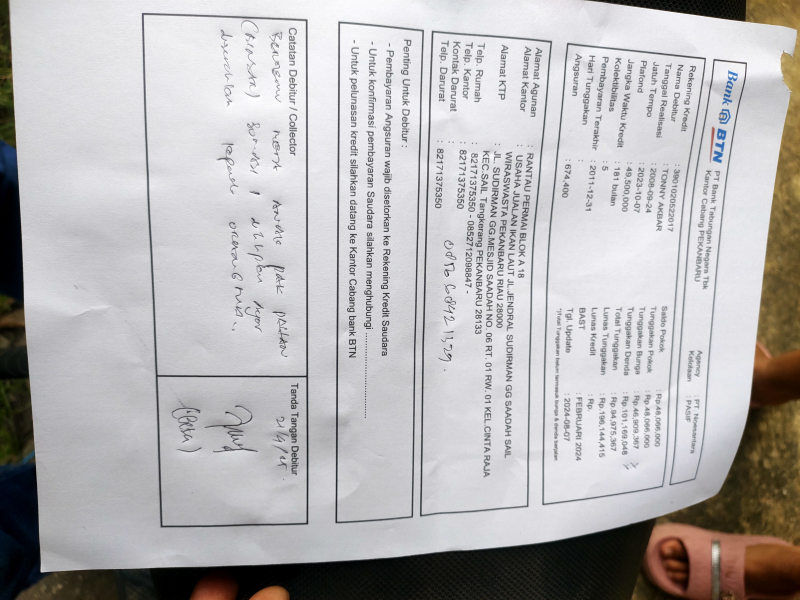 Bank BTN
PT Bank Tabungan Negara Tbk
Kantor Cabang PEKANBARU
Agency : PT. Noesantara
Kelolaan : PASIF
Rekening Kredit : 3901020522017
Nama Debitur : TONNY AKBAR
Tanggal Realisasi : 2008-09-24
Jatuh Tempo : 2023-10-07
Plafond : 49,500,000
Jangka Waktu Kredit : 181 bulan
Kolektibilitas : 5
Pembayaran Terakhir : 2011-12-31
Hari Tunggakan :
Angsuran : 674,400
Saldo Pokok : Rp.48,066,000
Tunggakan Pokok : Rp.48,066,000
Tunggakan Bunga : Rp.46,909,367
Tunggakan Denda : Rp.101,169,048
Total Tunggakan : Rp.94,975,367
Lunas Tunggakan : Rp.196,144,415
Lunas Kredit : Rp.
BAST : FEBRUARI 2024
Tgl. Update : 2024-08-07
*(Total Tunggakan belum termasuk bunga & denda berjalan
Alamat Agunan : RANTAU PERMAI BLOK A 18
Alamat Kantor : USAHA JUALAN IKAN LAUT JL.JENDRAL SUDIRMAN GG SAADAH SAIL
WIRASWASTA PEKANBARU RIAU 28000
Alamat KTP : JL. SUDIRMAN GG.MESJID SAADAH NO. 06 RT. 01 RW. 01 KEL.CINTA RAJA
KEC.SAIL Tangkerang PEKANBARU 28133
Telp. Rumah : 82171375350 - 0852712098847 -
Telp. Kantor : 82171375350
Kontak Darurat :
Telp. Darurat : 82171375350
Penting Untuk Debitur :
- Pembayaran Angsuran wajib disetorkan ke Rekening Kredit Saudara
- Untuk konfirmasi pembayaran Saudara silahkan menghubungi ........................
- Untuk pelunasan kredit silahkan datang ke Kantor Cabang bank BTN
Catatan Debitur / Collector
Tanda Tangan Debitur